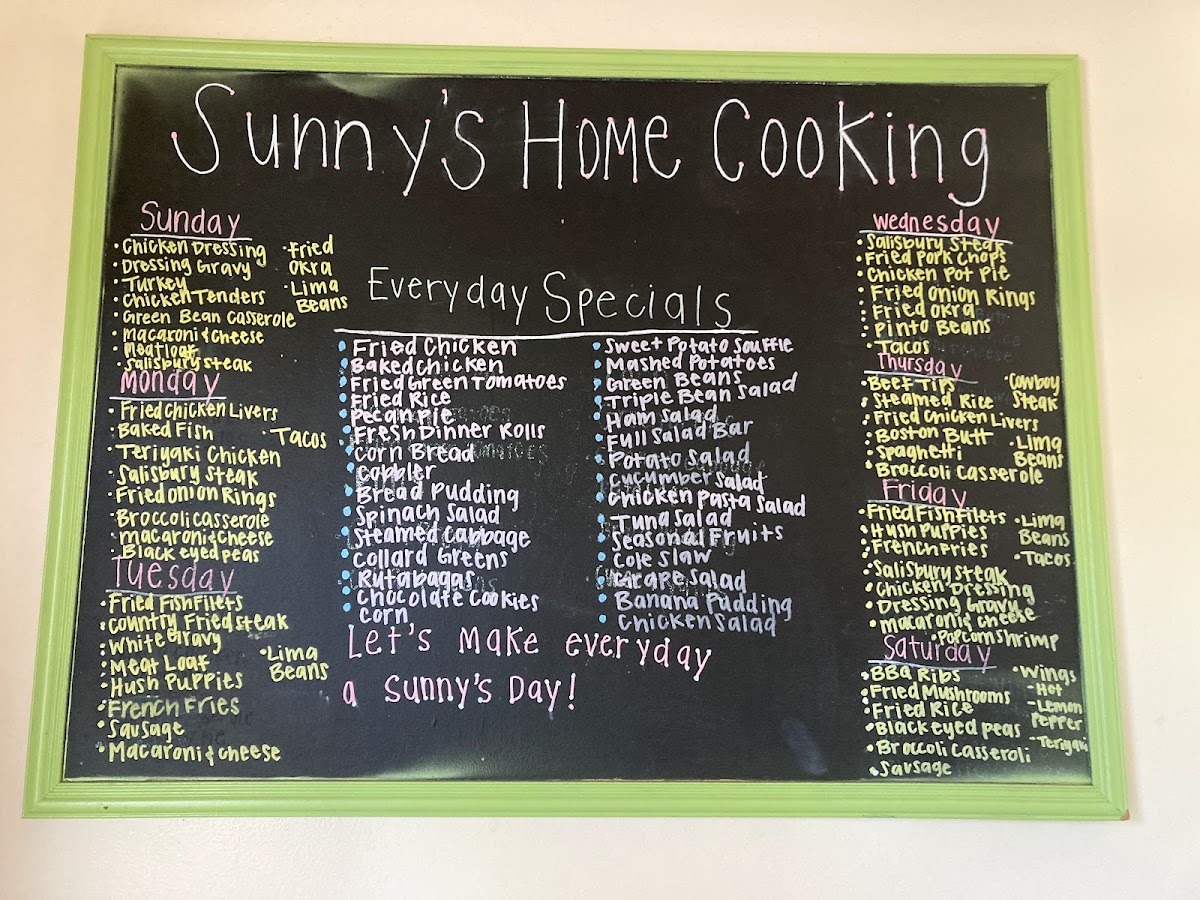 Sunny's Home Cooking
Sunday
• Chicken Dressing
• Dressing Gravy
• Turkey
• Chicken Tenders
• Green Bean Casserole
• Macaroni & Cheese
• Meatloaf
• Salisbury Steak
• Fried
Okra
• Lima
Beans
Monday
• Fried Chicken Livers
• Baked Fish
• Teriyaki Chicken
• Salisbury Steak
• Fried Onion Rings
• Broccoli Casserole
• Macaroni & Cheese
• Black eyed peas
• Tacos
Tuesday
• Fried Fish Filets
• Country Fried Steak
• White Gravy
• Meat Loaf
• Hush Puppies
• French Fries
• Sausage
• Macaroni & Cheese
• Lima
Beans
Everyday Specials
• Fried Chicken
• Baked Chicken
• Fried Green Tomatoes
• Fried Rice
• Pecan Pie
• Fresh Dinner Rolls
• Corn Bread
• Cobbler
• Bread Pudding
• Spinach Salad
• Steamed Cabbage
• Collard Greens
• Rutabagas
• Chocolate Cookies
• Corn
• Sweet Potato Souffle
• Mashed Potatoes
• Green Beans
• Triple Bean Salad
• Ham Salad
• Full Salad Bar
• Potato Salad
• Cucumber Salad
• Chicken Pasta Salad
• Tuna Salad
• Seasonal Fruits
• Cole Slaw
• Grape Salad
• Banana Pudding
• Chicken Salad
Let's Make everyday
a Sunny's Day!
Wednesday
• Salisbury Steak
• Fried Pork Chops
• Chicken Pot Pie
• Fried Onion Rings
• Fried Okra
• Pinto Beans
• Tacos
Thursday
• Beef Tips
• Steamed Rice
• Fried Chicken Livers
• Boston Butt
• Spaghetti
• Broccoli Casserole
• Cowboy
Steak
• Lima
Beans
Friday
• Fried Fish Filets
• Hush Puppies
• French Fries
• Salisbury Steak
• Chicken Dressing
• Dressing Gravy
• Macaroni & Cheese
• Popcorn Shrimp
• Lima
Beans
• Tacos
Saturday
• BBQ Ribs
• Fried Mushrooms
• Fried Rice
• Black eyed peas
• Broccoli Casseroli
• Sausage
• Wings
- Hot
- Lemon
Pepper
- Teriyaki